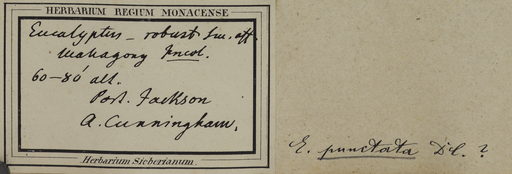 HERBARIUM REGIUM MONACENSE
Eucalyptus - robust Sm. aff.
Mahagony Incol.
60-80' alt.
Port. Jackson
A. Cunningham.
Herbarium Sieberianum.
E. punctata DC. ?